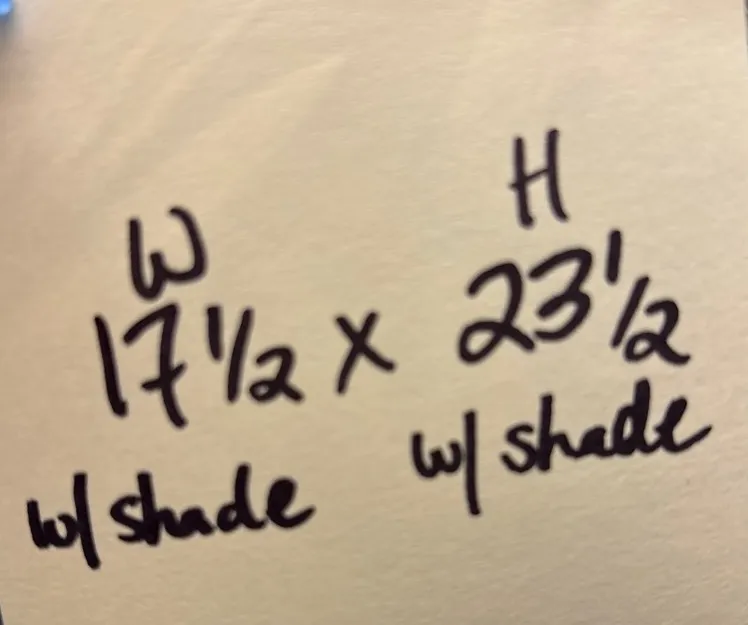 W H
17 1/2 x 23 1/2
w/ shade w/ shade